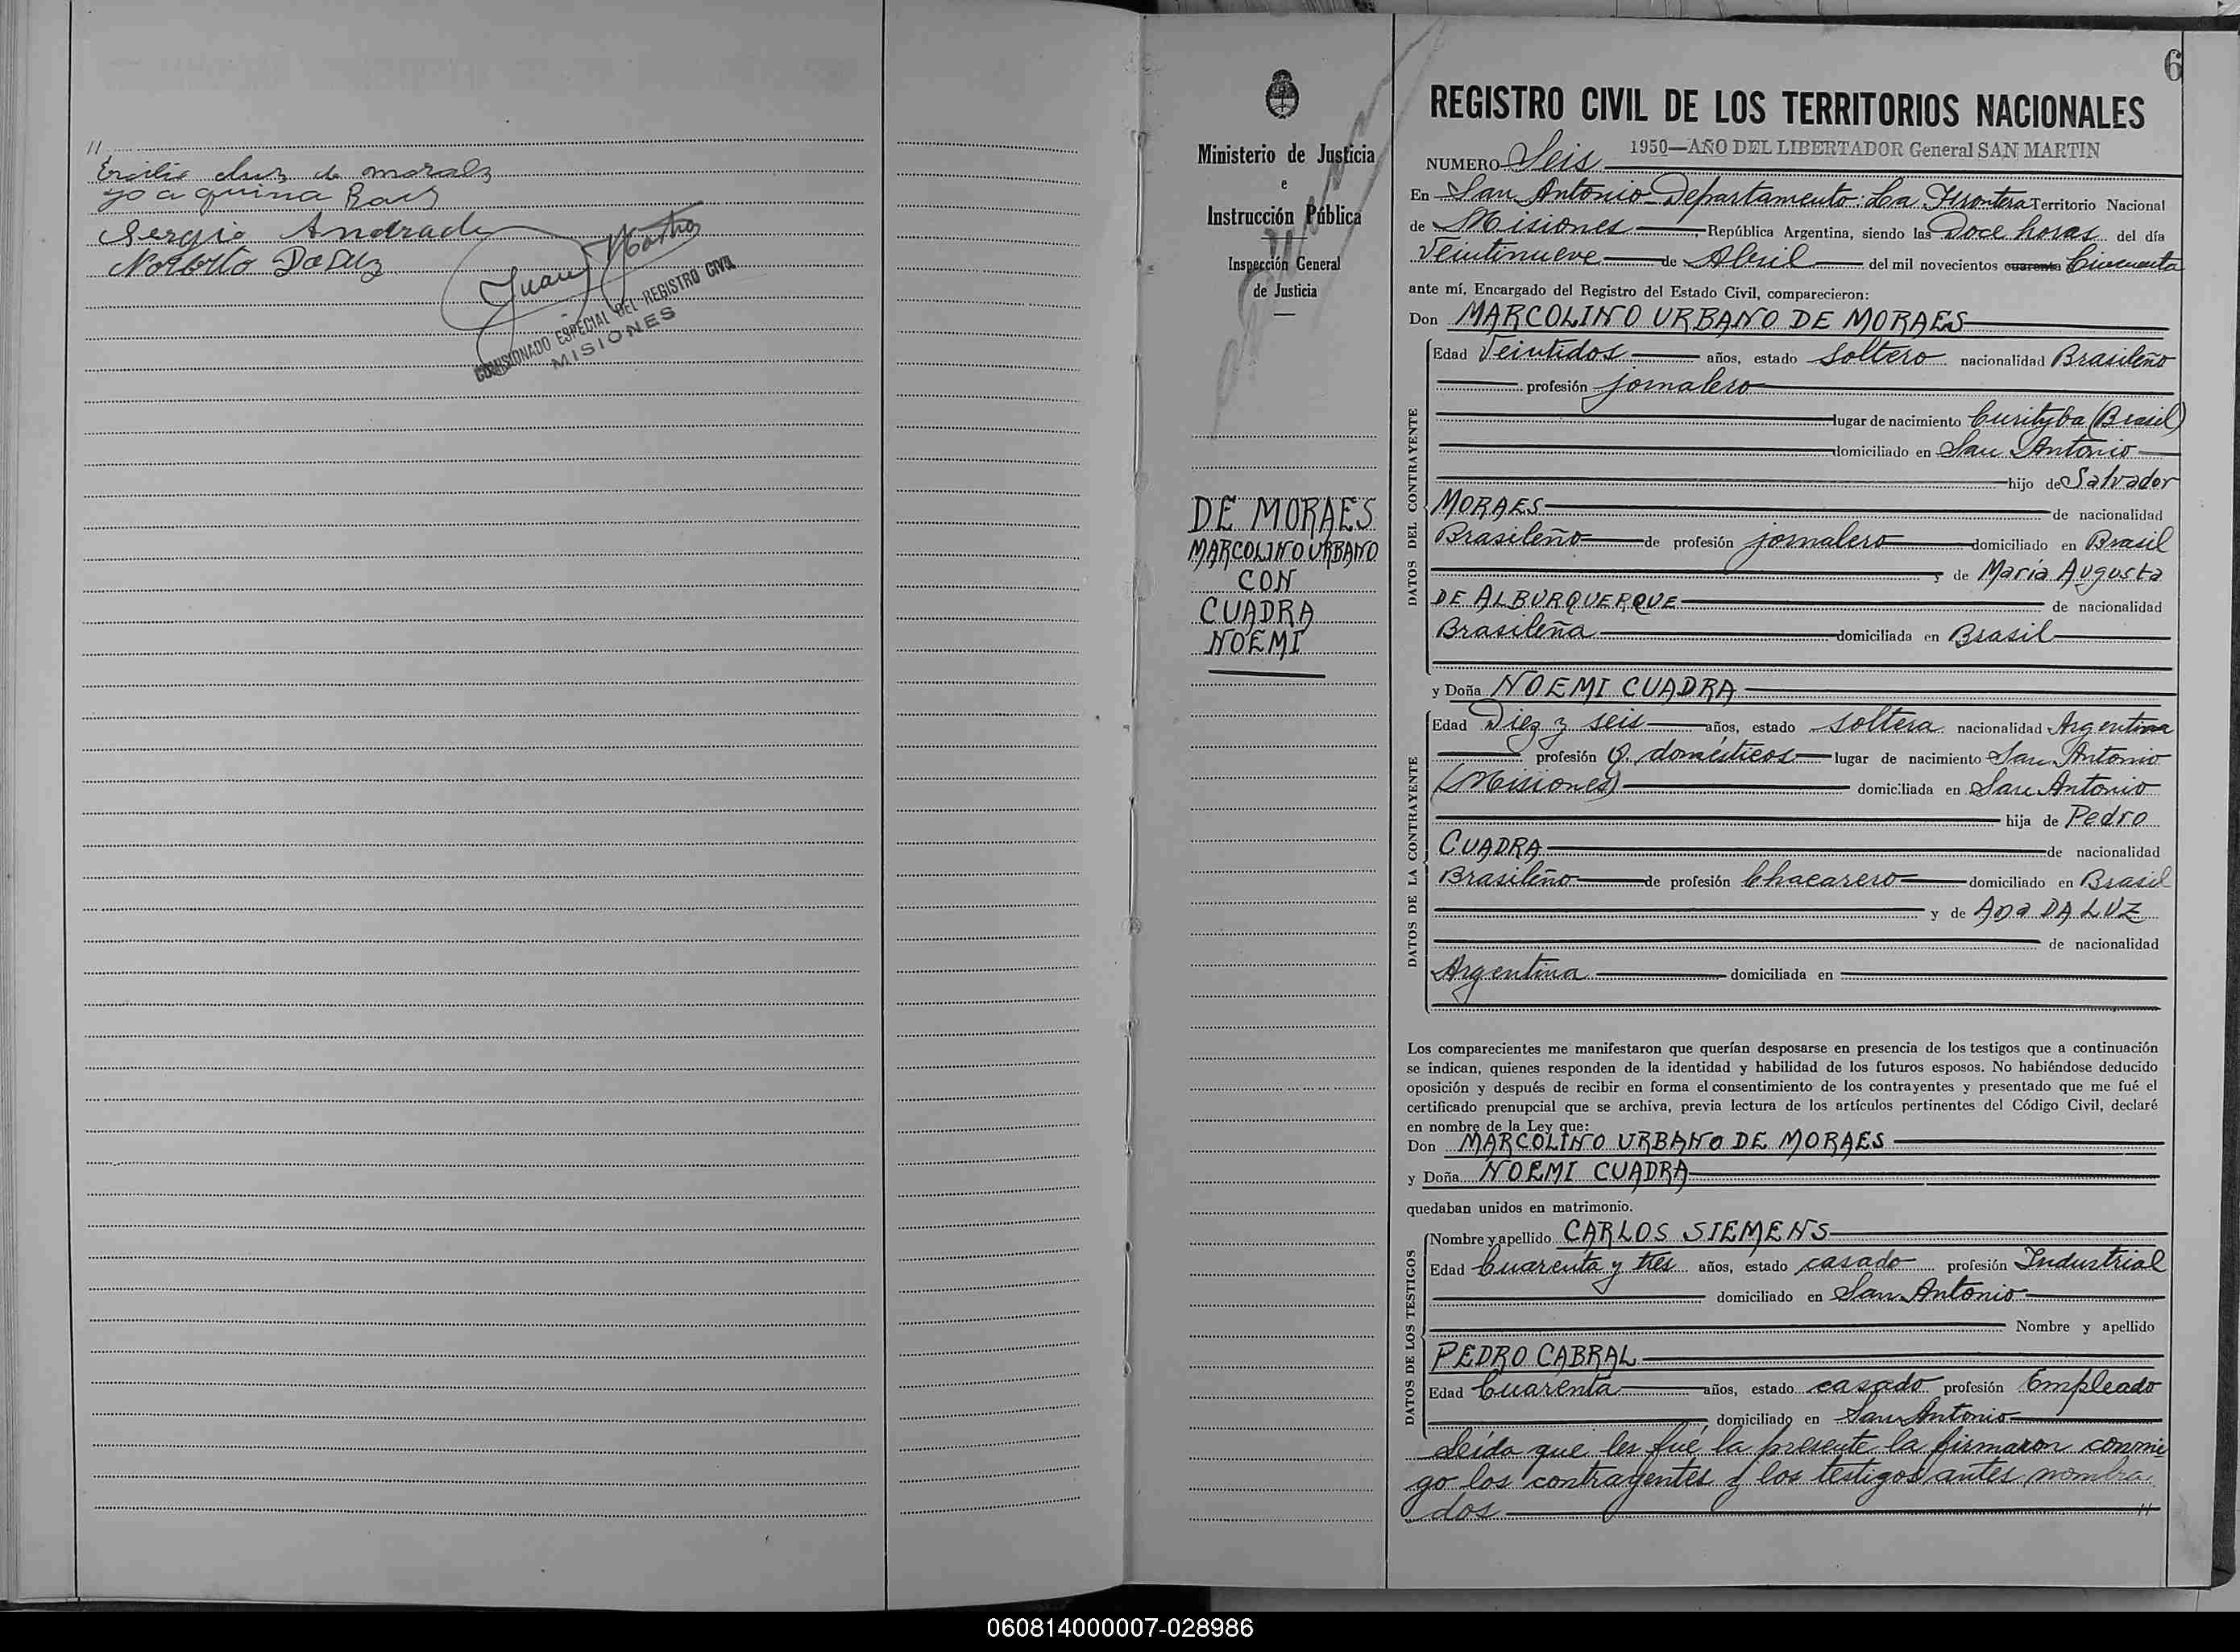 //
Ercilio cluz de morals
yoaquina Rais
Sergio Andrade
Norberto Da Luz
Juan
COMISIONADO ESPECIAL DEL REGISTRO CIVIL
MISIONES
Ministerio de Justicia
e
Instrucción Pública
Inspección General
de Justicia
DE MORAES
MARCOLINO URBANO
CON
CUADRA
NOEMI
6
REGISTRO CIVIL DE LOS TERRITORIOS NACIONALES
1950—AÑO DEL LIBERTADOR General SAN MARTIN
NUMERO Seis
En San Antonio - Departamento: La Frontera Territorio Nacional
de Misiones, República Argentina, siendo las Doce horas del día
Veintinueve de Abril del mil novecientos cuarenta Cincuenta
ante mí, Encargado del Registro del Estado Civil, comparecieron:
Don MARCOLINO URBANO DE MORAES
DATOS DEL CONTRAYENTE
Edad Veintidos años, estado soltero nacionalidad Brasileño
profesión jornalero
lugar de nacimiento Curityba (Brasil)
domiciliado en San Antonio
hijo de Salvador
MORAES de nacionalidad
Brasileño de profesión jornalero domiciliado en Brasil
y de María Augusta
DE ALBURQUERQUE de nacionalidad
Brasileña domiciliada en Brasil
y Doña NOEMI CUADRA
DATOS DE LA CONTRAYENTE
Edad Diez y seis años, estado soltera nacionalidad Argentina
profesión Q. domésticos lugar de nacimiento San Antonio
(Misiones) domiciliada en San Antonio
hija de Pedro
CUADRA de nacionalidad
Brasileño de profesión Chacarero domiciliado en Brasil
y de Ana DA LUZ
de nacionalidad
Argentina domiciliada en
Los comparecientes me manifestaron que querían desposarse en presencia de los testigos que a continuación
se indican, quienes responden de la identidad y habilidad de los futuros esposos. No habiéndose deducido
oposición y después de recibir en forma el consentimiento de los contrayentes y presentado que me fué el
certificado prenupcial que se archiva, previa lectura de los artículos pertinentes del Código Civil, declaré
en nombre de la Ley que:
Don MARCOLINO URBANO DE MORAES
y Doña NOEMI CUADRA
quedaban unidos en matrimonio.
DATOS DE LOS TESTIGOS
Nombre y apellido CARLOS SIEMENS
Edad Cuarenta y tres años, estado casado profesión Industrial
domiciliado en San Antonio
Nombre y apellido
PEDRO CABRAL
Edad Cuarenta años, estado casado profesión Empleado
domiciliado en San Antonio
Leída que les fué la presente la firmaron conmi
go los contrayentes y los testigos antes nombra
dos //
060814000007-028986